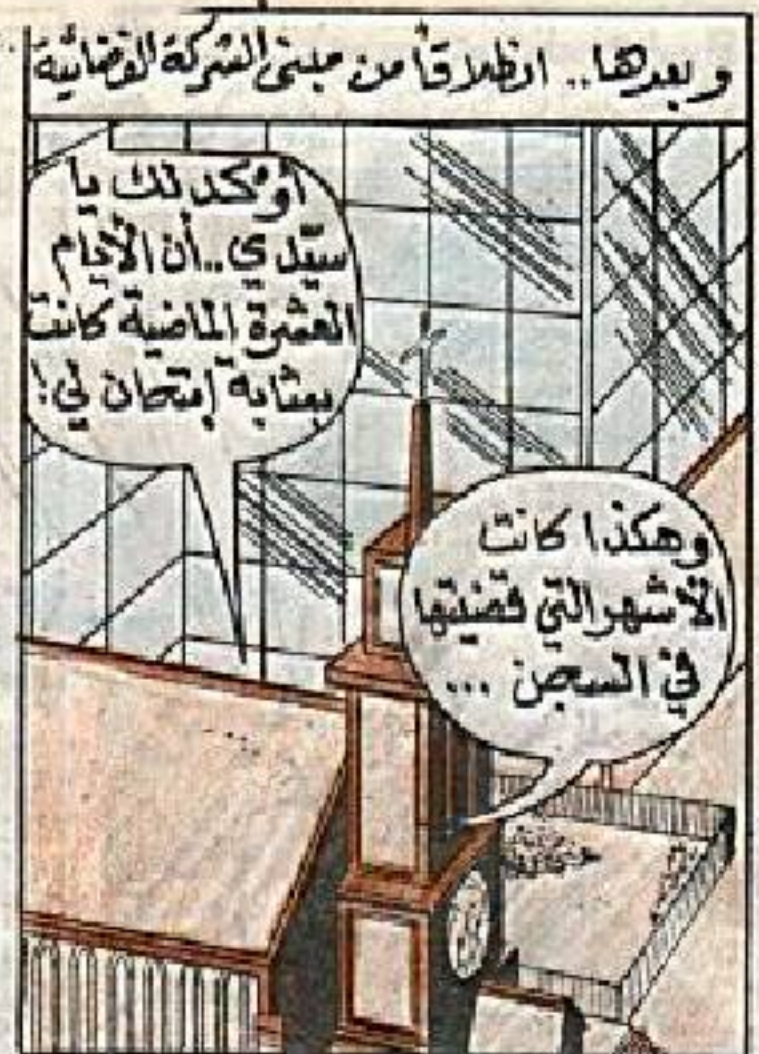 و بعدها.. انطلاقاً من مبنى الشركة الفضائية
أوُكد لك يا
سيّدي.. أن الأيام
العشرة الماضية كانت
بمثابة إمتحان لي!
وهكذا كانت
الأشهر التي قضيتها
في السجن ...